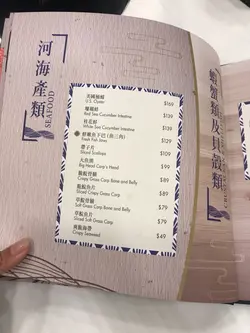 河海產類
SEAFOOD
美國桶蠔
U.S. Oyster
$169
Red Sea Cucumber Intestine
$139
桂花蚌
White Sea Cucumber Intestine
$139
Fresh Fish Jaws
$129
帶子片
Sliced Scallops
$109
大魚頭
Big Head Carp's Head
$99
脆鯇骨腩
Crispy Grass Carp Bone and Belly
$89
脆鯇魚片
Sliced Crispy Grass Carp
$89
草鯇骨腩
Soft Grass Carp Bone and Belly
$79
草鯇魚片
Sliced Soft Grass Carp
$79
Crispy Seaweed
$49
蝦蟹類及貝殼類